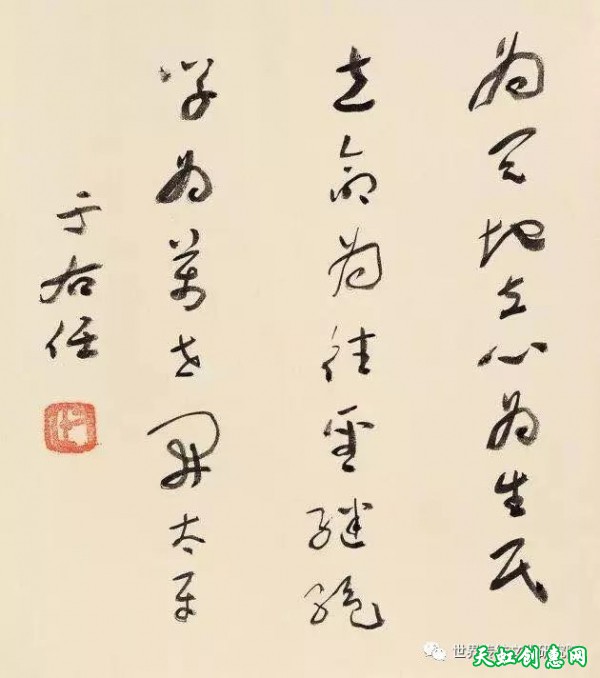 為天地立心為生民
立命為往聖繼絕
學為萬世開太平
于右任
右任
世界
天虹创意网